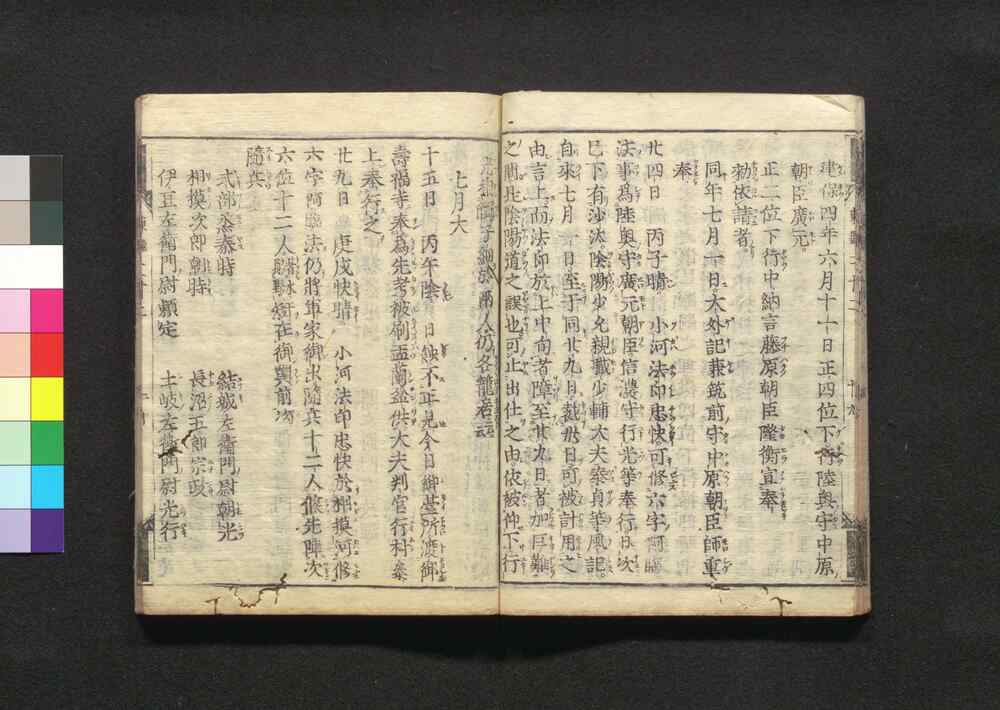 建保四年六月十一日正四位下行陸奥守中原
朝臣廣元
正二位下行中納言藤原朝臣 宣奉
勅依請者
同年七月一日大外記兼筑前守中原朝臣師重
奉
廿四日 丙子晴 小河法印忠快可修六字河臨
法事爲陸奥守廣元朝臣信濃守行光等奉行日次
已下有沙汰陰陽少允親職少輔大夫泰貞等風記
自來七月一日至于同廿九日裁 日可被計用之
由言上而法印於上中旬者障至廿九日者加巨難
之間是陰陽道之誤也可止出仕之由依被仰下行
人仍各籠者云云
七月大
十五日 丙午陰 日蝕不正見今日御臺所渡御
壽福寺奉爲先考被刷盂蘭盆供大夫判官行村奉
上奉行之
廿九日 庚戌快晴 小河法印忠快於相摸河修
六字河臨法仍將軍家御出隨兵十二人候先陣次
六位十二人 在御輿前
隨兵
式部丞泰時 結城左衞門尉朝光
相摸次郎朝時 長沼五郎宗政
伊豆左衞門尉頼定 土岐左衞門尉光行